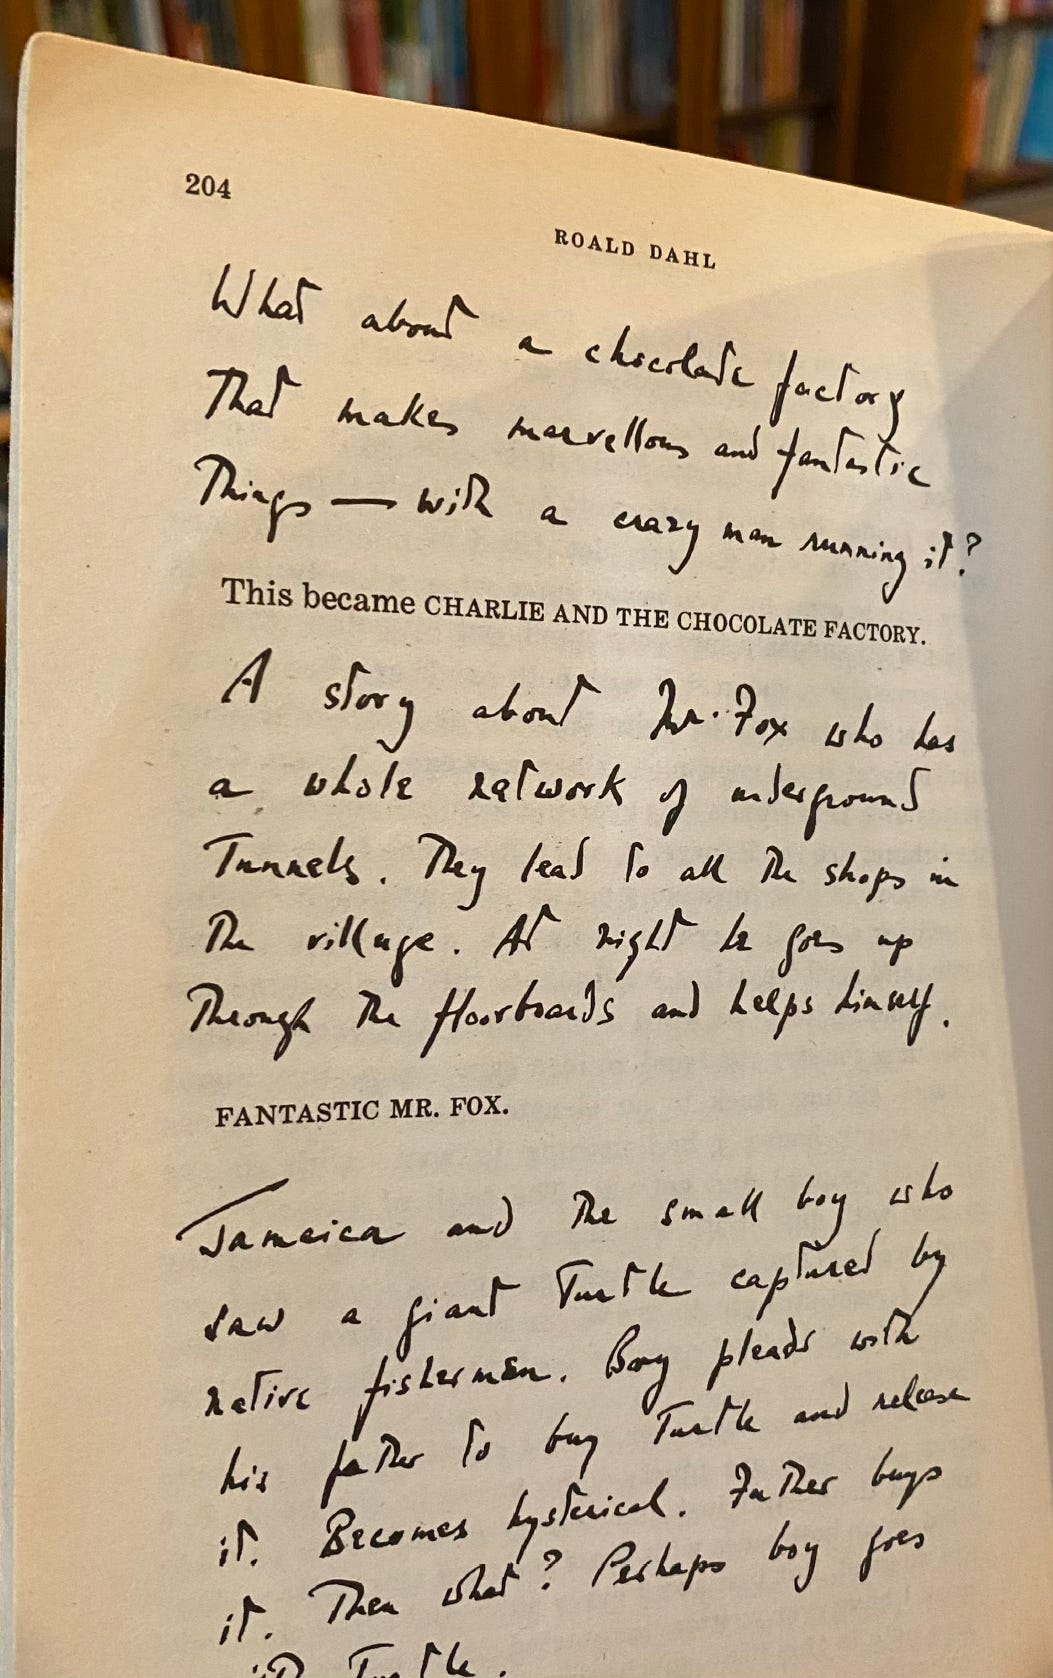 204
ROALD DAHL
What about a chocolate factory
That makes marvellous and fantastic
Things — with a crazy man running it?
This became CHARLIE AND THE CHOCOLATE FACTORY.
A story about Mr. Fox who has
a whole network of underground
Tunnels. They lead to all the shops in
the village. At night he goes up
Through the floorboards and helps himself.
FANTASTIC MR. FOX.
Jamaica and the small boy who
saw a giant Turtle captured by
native fishermen. Boy pleads with
his father to buy Turtle and release
it. Becomes hysterical. Father buys
it. Then what? Perhaps boy goes
Turtle.